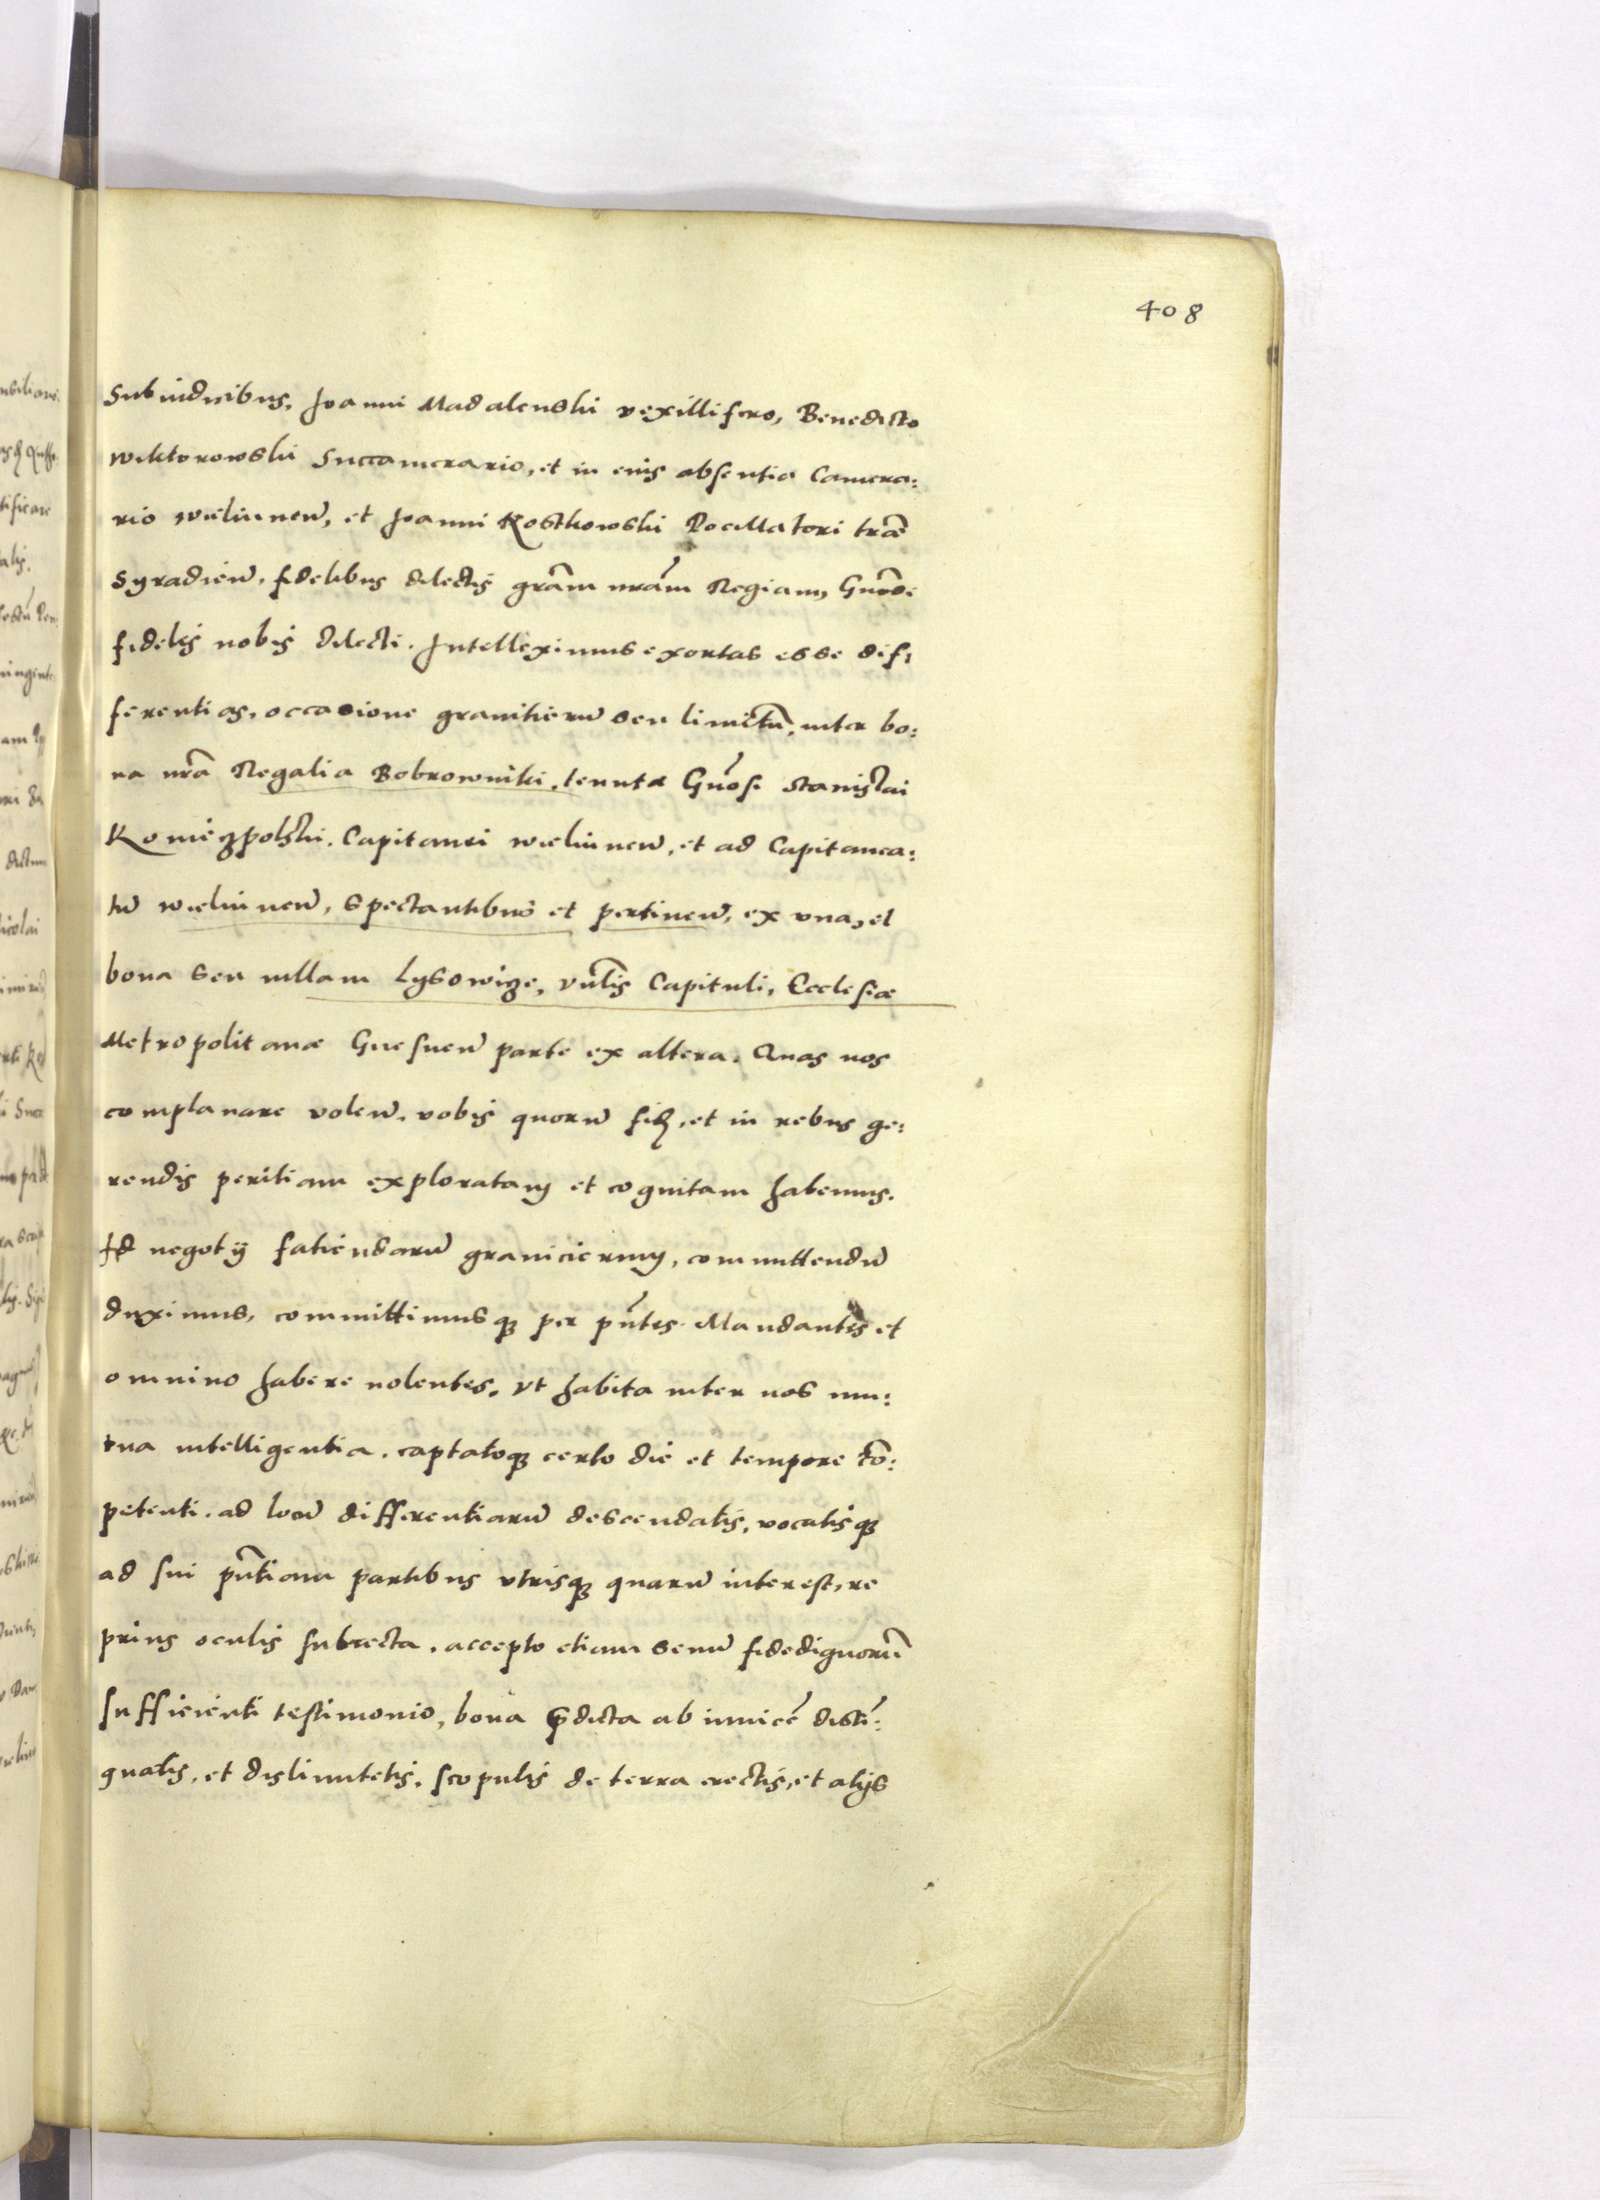 408
Subiudicibus, Joanni Madalenski vexillifero, Benedicto
Wiktorowski Succamerario, et in eius absentia Camera:
rio wieliuneñ, et Joanni Kostkowski Pocillatori træ̃
Syradieñ, fidelibus dilectis grãm nrãm Regiam, Gnõsi
fideles nobis dilecti. Intelleximus exortas esse dif,
ferentias, occasione granitierũ seu limitũ, inter bo:
na nrã Regalia Bobrowniki, tenutæ Gnõsi Stanislai
Konieczpolski, Capitanei wieliuneñ, et ad Capitanea:
tũ wieliuneñ, spectantibus et pertineñ, ex vna, et
bona seu villam Lysowice, vñlis Capituli, Ecclesiæ
Metropolitanæ Gnesneñ parte ex altera. Quas nos
complanare voleñ, vobis quorũ fidẽ, et in rebus ge:
rendis peritiam exploratam et cognitam habemus.
Id negotÿ fatiendarũ granicierum, committendũ
duximus, committimusq3 per pñtes. Mandantes et
omnino habere nolentes, vt habita inter vos mu:
tua intelligentia, captatoq3 certo die et tempore cõ:
petenti, ad locũ differentiarũ descendatis, vocatisq3
ad sui pñtiam partibus vtrisq3 quarũ interest, re
prius oculis subiecta, accepto etiam senũ fidedignorũ
sufficienti testimonio, bona p̃dicta ab inuicẽ disti:
guatis, et dislimitetis, scopulis de terra erectis, et alÿs